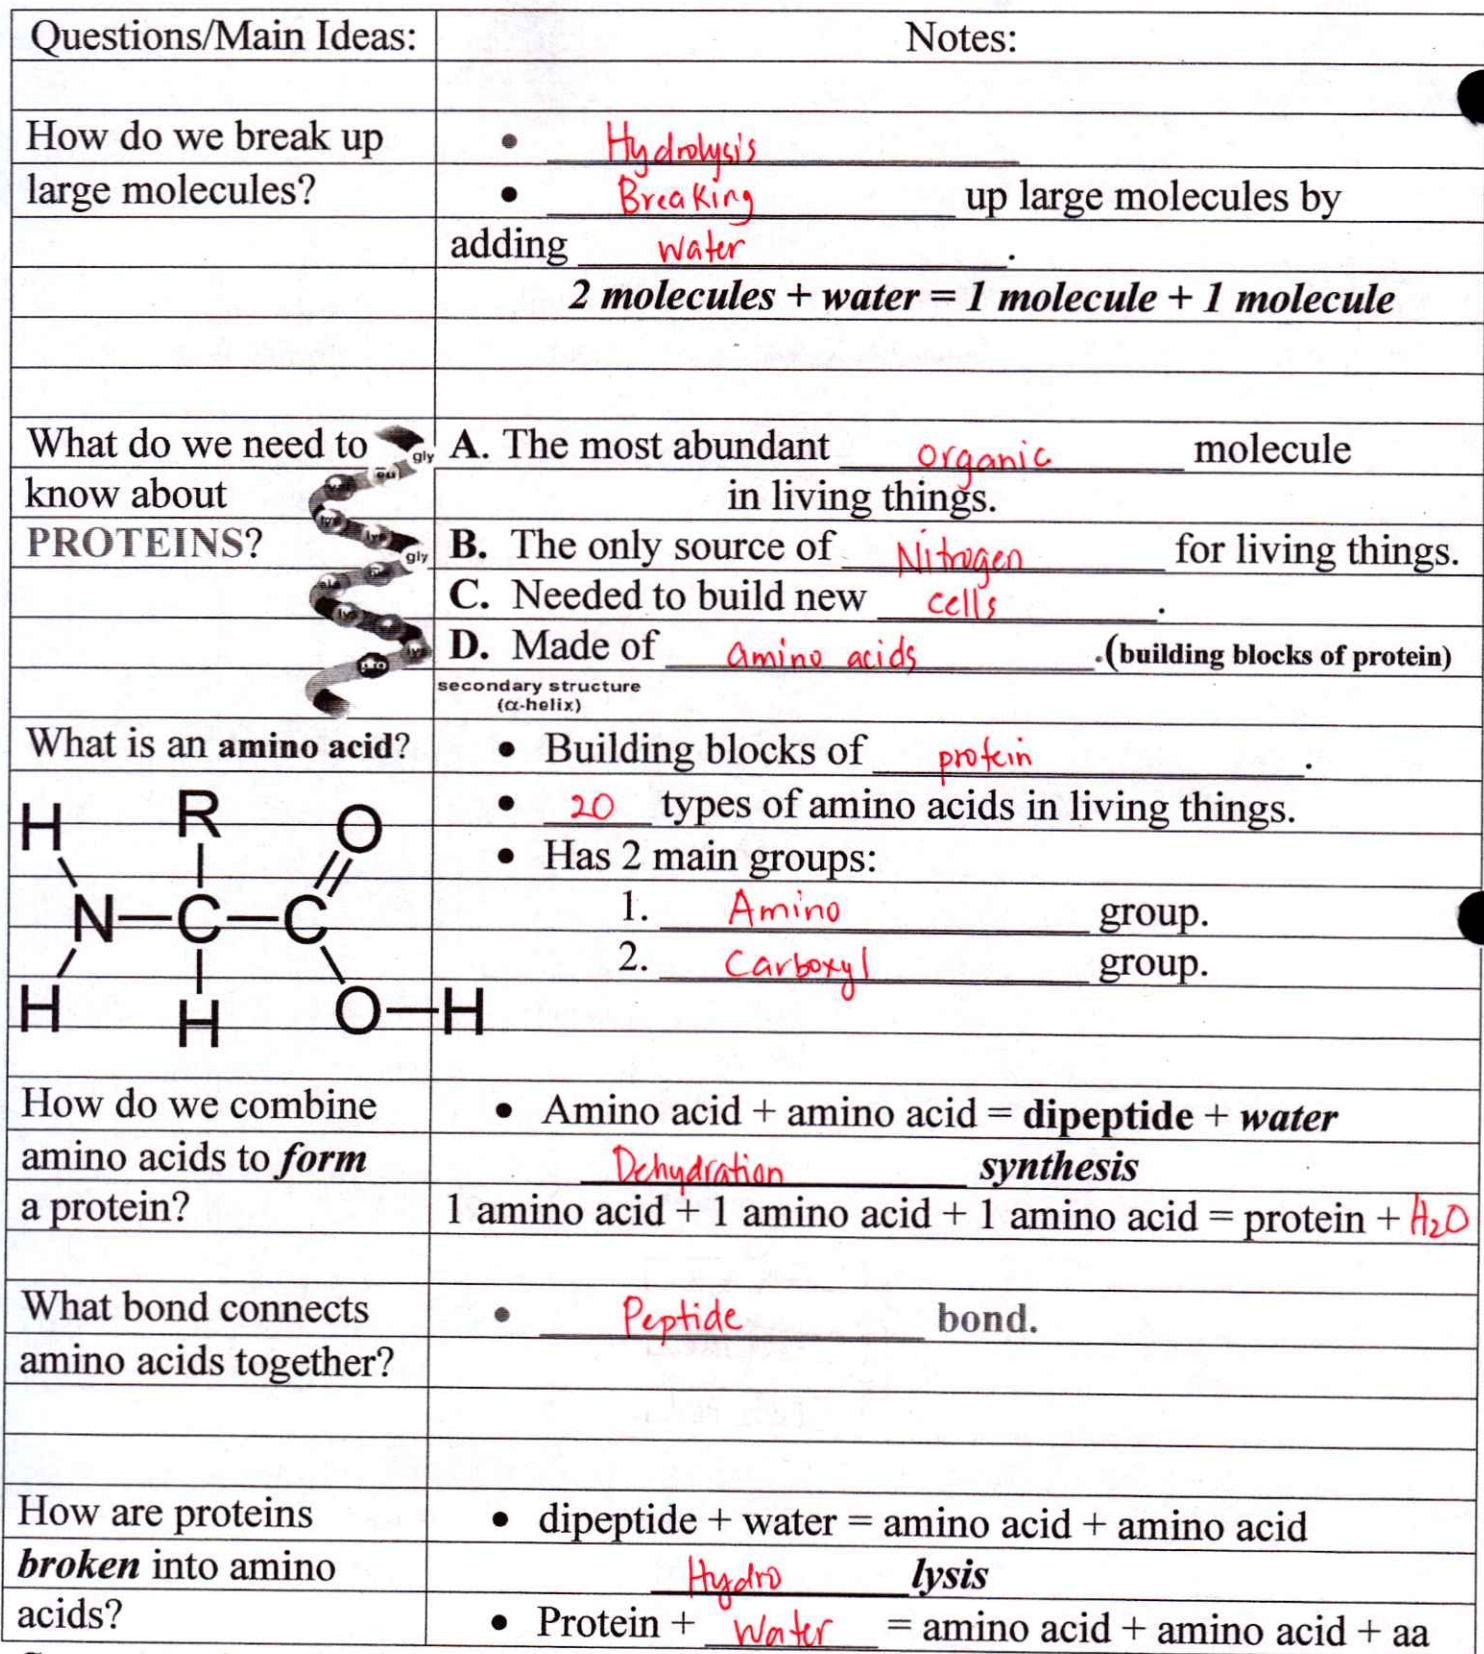 Questions/Main Ideas:
Notes:
How do we break up
large molecules?
• Hydrolysis
• Breaking up large molecules by
adding water.
2 molecules + water = 1 molecule + 1 molecule
What do we need to
know about
PROTEINS?
gly
lys
lys
gly
ala
lys
lys
pro
secondary structure
(α-helix)
A. The most abundant organic molecule
in living things.
B. The only source of Nitrogen for living things.
C. Needed to build new cells.
D. Made of amino acids.(building blocks of protein)
What is an amino acid?
H R O
N—C—C
H H O—H
• Building blocks of protein.
• 20 types of amino acids in living things.
• Has 2 main groups:
1. Amino group.
2. Carboxyl group.
How do we combine
amino acids to form
a protein?
• Amino acid + amino acid = dipeptide + water
Dehydration synthesis
1 amino acid + 1 amino acid + 1 amino acid = protein + H₂O
What bond connects
amino acids together?
• Peptide bond.
How are proteins
broken into amino
acids?
• dipeptide + water = amino acid + amino acid
Hydro lysis
• Protein + water = amino acid + amino acid + aa